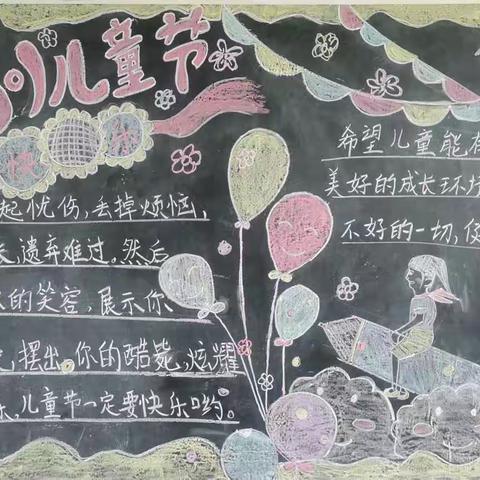 儿童节
快
起忧伤，丢掉烦恼，
，遗弃难过。然后
的笑容，展示你
，摆出你的酷毙，炫耀
，儿童节一定要快乐哟。
希望儿童能
美好的成长环
不好的一切，